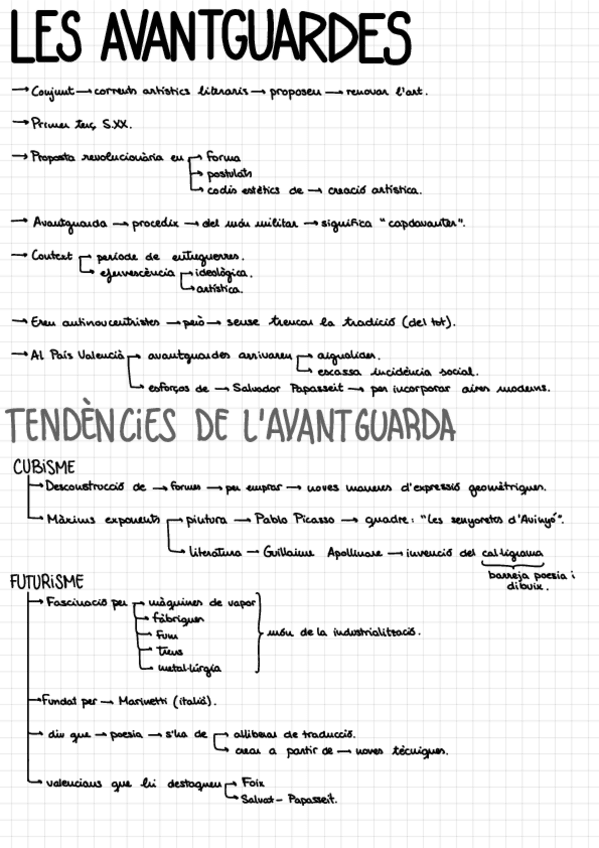 LES AVANTGUARDES
→ Conjunt → corrents artístics literaris → proposen → renovar l'art.
→ Primer terç S.XX.
→ Proposta revolucionària en → forma
→ postulats
→ codis estètics de → creació artística.
→ Avantguarda → procedix → del món militar → significa "capdavanter".
→ Context → període de entreguerres.
→ efervescència → ideològica.
→ artística.
→ Eren antinoucentristes → però → sense trencar la tradició (del tot).
→ Al País Valencià → avantguardes arrivaren → aigualides.
→ escassa incidència social.
→ esforços de → Salvador Papasseit → per incorporar aires moderns.
TENDÈNCIES DE L'AVANTGUARDA
CUBISME
→ Desconstrucció de → formes → per emprar → noves maneres d'expressió geomètriques.
→ Màxims exponents → pintura → Pablo Picasso → quadre: "Les senyoretes d'Avinyó".
→ literatura → Guillaime Apollinare → invenció del cal·ligrama
barreja poesia i
dibuix.
FUTURISME
→ Fascinació per → màquines de vapor
→ fàbriques
→ fum
→ trens
→ metal·lúrgia
món de la industrialització.
→ Fundat per → Marinetti (italià).
→ diu que → poesia → s'ha de → alliberar de traducció.
→ crear a partir de → noves tècniques.
→ valencians que hi destaquen → Foix
→ Salvat-Papasseit.